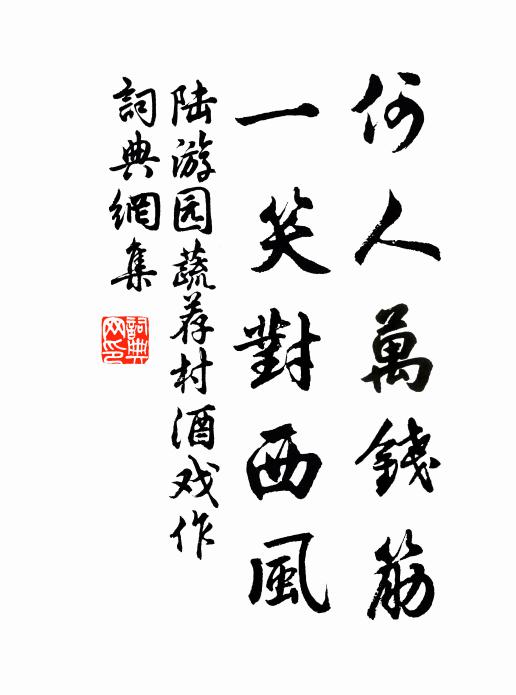 何人萬錢筋
一笑對西風
陆游园蔬荐村酒戏作
詞典網集
詞典網印